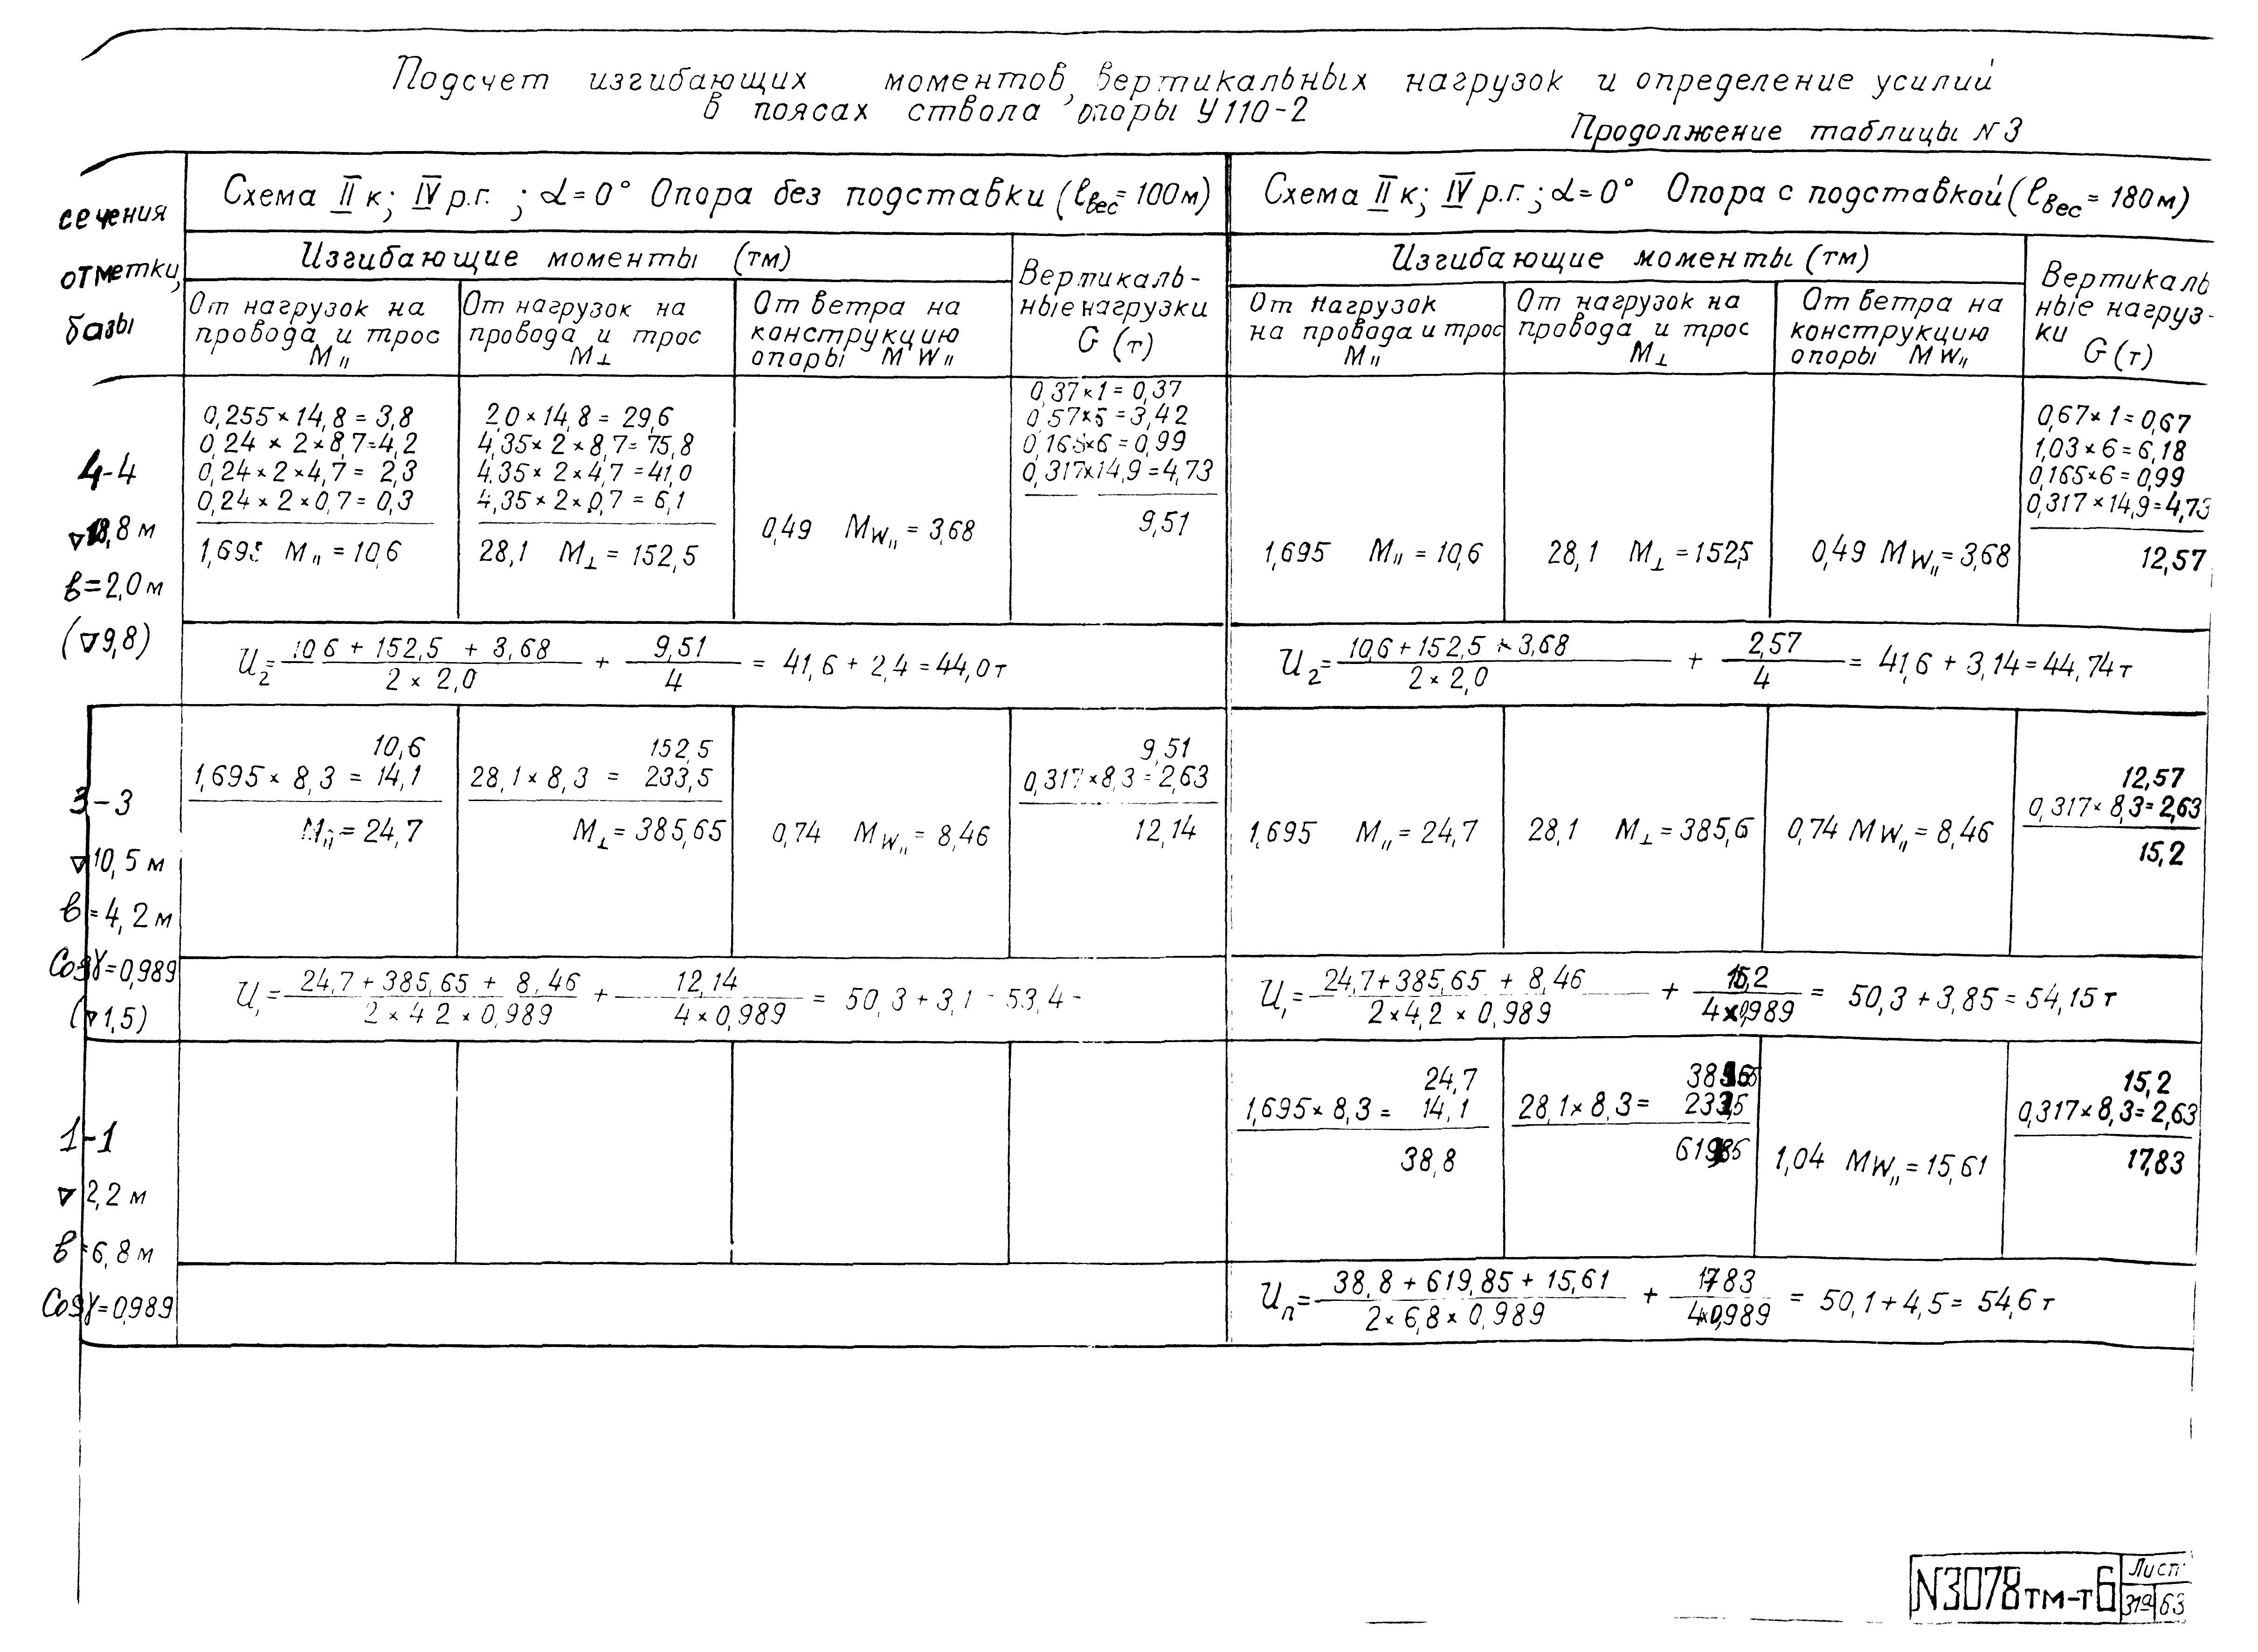 Подсчет изгибающих моментов, вертикальных нагрузок и определение усилий
в поясах ствола опоры У110-2
Продолжение таблицы N3
сечения
отметки,
базы
Схема II к; IV р.г. ; α=0° Опора без подставки (lвес=100м)
Изгибающие моменты (тм)
От нагрузок на
провода и трос
M∥
От нагрузок на
провода и трос
M⊥
От ветра на
конструкцию
опоры MW∥
Вертикаль-
ные нагрузки
G (т)
Схема II к; IV р.г.; α=0° Опора с подставкой (lвес=180м)
Изгибающие моменты (тм)
От нагрузок
на провода и трос
M∥
От нагрузок на
провода и трос
M⊥
От ветра на
конструкцию
опоры MW∥
Вертикаль
ные нагруз-
ки
G (т)
4-4
▽18,8 м
в=2,0 м
(▽9,8)
0,255×14,8=3,8
0,24×2×8,7=4,2
0,24×2×4,7=2,3
0,24×2×0,7=0,3
1,695 M∥=10,6
2,0×14,8=29,6
4,35×2×8,7=75,8
4,35×2×4,7=41,0
4,35×2×0,7=6,1
28,1 M⊥=152,5
0,49 MW∥=3,68
0,37×1=0,37
0,57×5=3,42
0,165×6=0,99
0,317×14,9=4,73
9,51
1,695 M∥=10,6
28,1 M⊥=152,5
0,49 MW∥=3,68
0,67×1=0,67
1,03×6=6,18
0,165×6=0,99
0,317×14,9=4,73
12,57
U2= 10 6+152,5+3,68 / 2×2,0 + 9,51 / 4 = 41,6+2,4=44,0 т
U2= 10,6+152,5+3,68 / 2×2,0 + 2,57 / 4 = 41,6+3,14=44,74 т
3-3
▽10,5 м
в=4,2 м
Cosγ=0,989
(▽1,5)
10,6
1,695×8,3=14,1
M∥=24,7
152,5
28,1×8,3=233,5
M⊥=385,65
0,74 MW∥=8,46
9,51
0,317×8,3=2,63
12,14
1,695 M∥=24,7
28,1 M⊥=385,6
0,74 MW∥=8,46
12,57
0,317×8,3=2,63
15,2
U1= 24,7+385,65+8,46 / 2×4 2×0,989 + 12,14 / 4×0,989 = 50,3+3,1 - 53,4 -
U1= 24,7+385,65+8,46 / 2×4,2×0,989 + 15,2 / 4×0,989 = 50,3+3,85=54,15 т
1-1
▽2,2 м
в=6,8 м
Cosγ=0989
24,7
1,695×8,3= 14,1
38,8
28,1×8,3=
1,04 MW∥=15,61
15,2
0,317×8,3=2,63
17,83
Uп= 38,8+619,85+15,61 / 2×6,8×0,989 + 1783 / 4×0,989 = 50,1+4,5=54,6 т
N3078тм-т6
Лист
31а 63